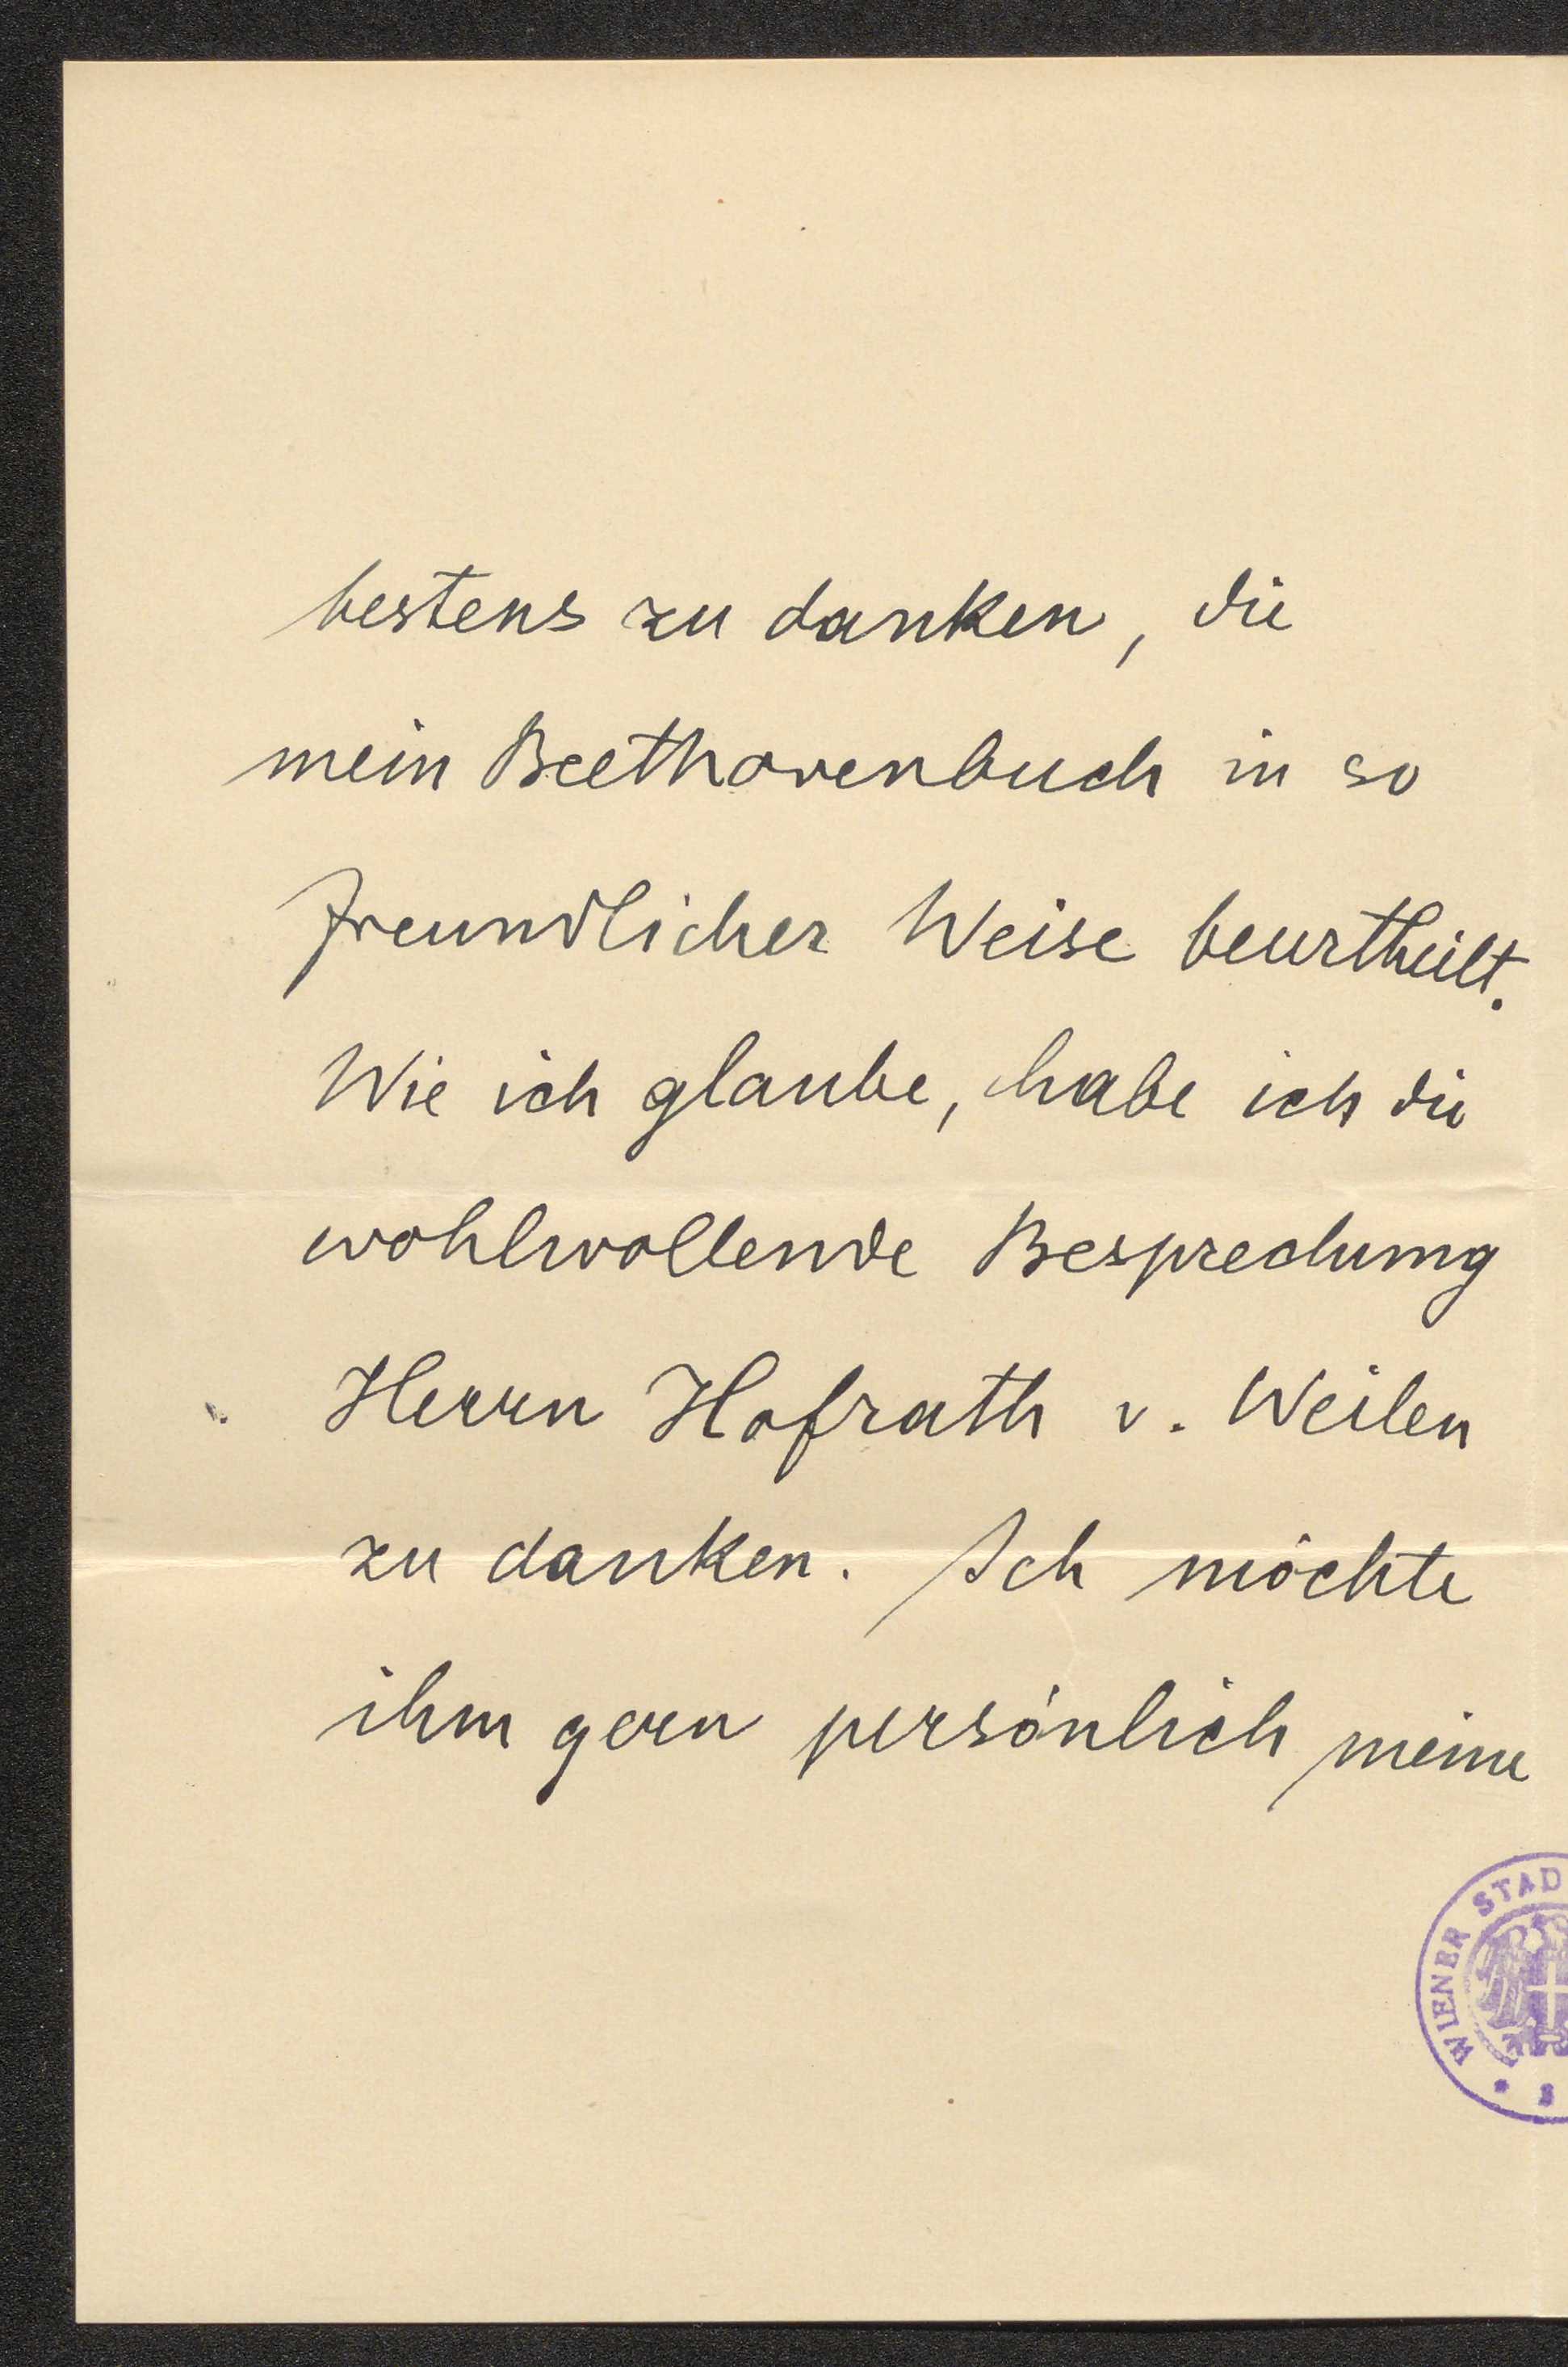 bestens zu danken, die
mein Beethovenbuch in so
freundlicher Weise beurtheilt.
Wie ich glaube, habe ich die
wohlwollende Besprechung
Herrn Hofrath v. Weilen
zu danken. Ich möchte
ihm gern persönlich meine
WIENER STAD